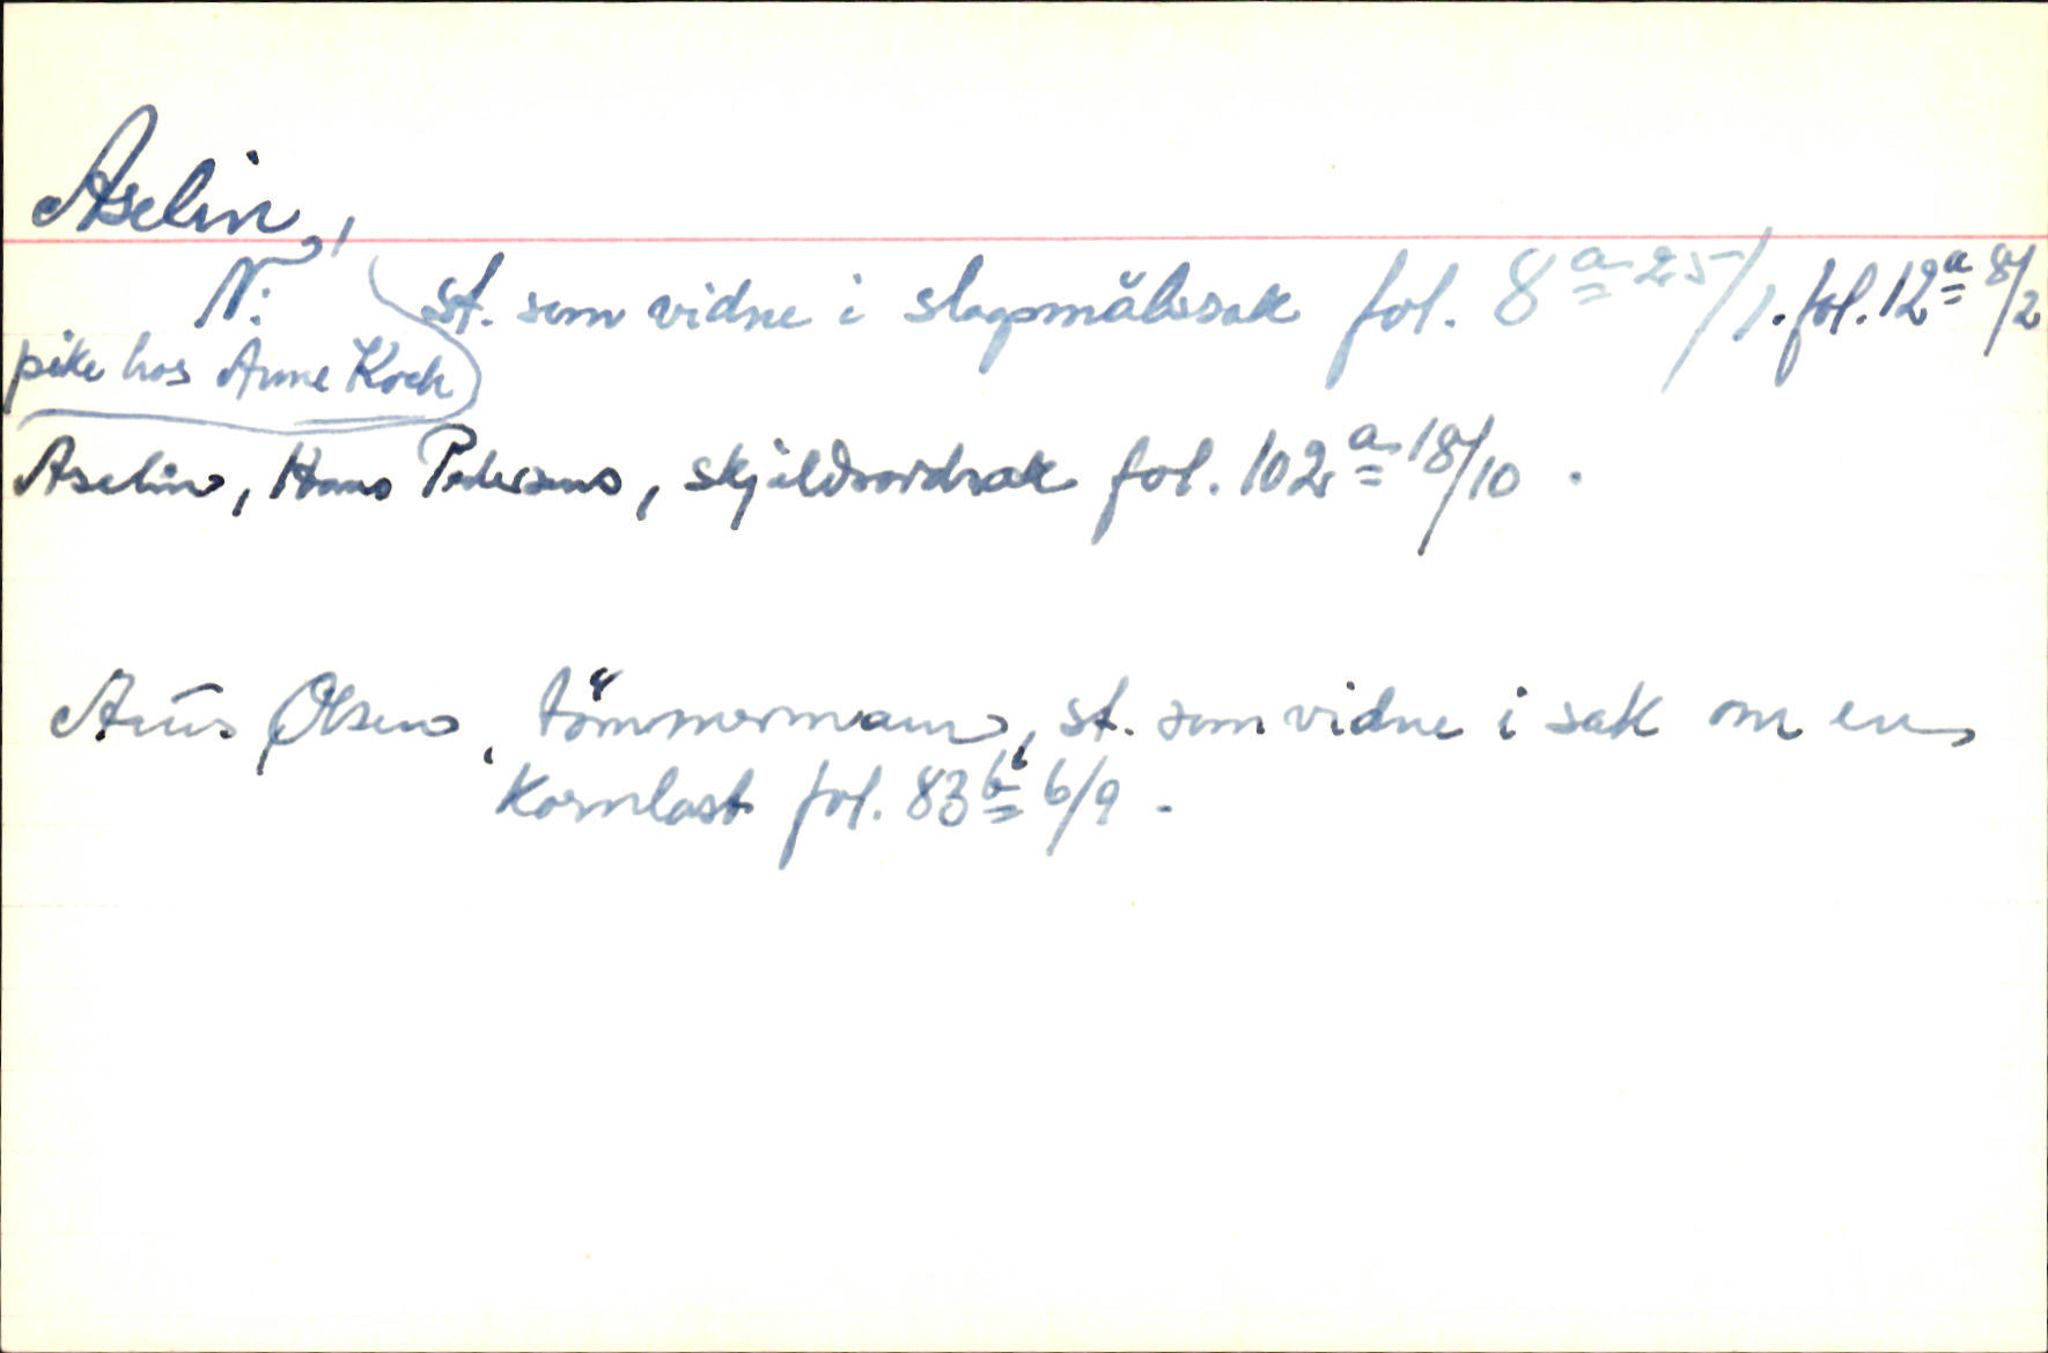 Aselin,
N: st. som vidne i slagsmålssak fol. 8ª 25/1. fol. 12ª 8/2
pike hos Anne Koch
Aselin, Hans Pedersens, skjeldsordsak fol. 102ª 18/10.
Olsen, tömmermann, st. som vidne i sak om en
Kornlast fol. 83b 6/9.